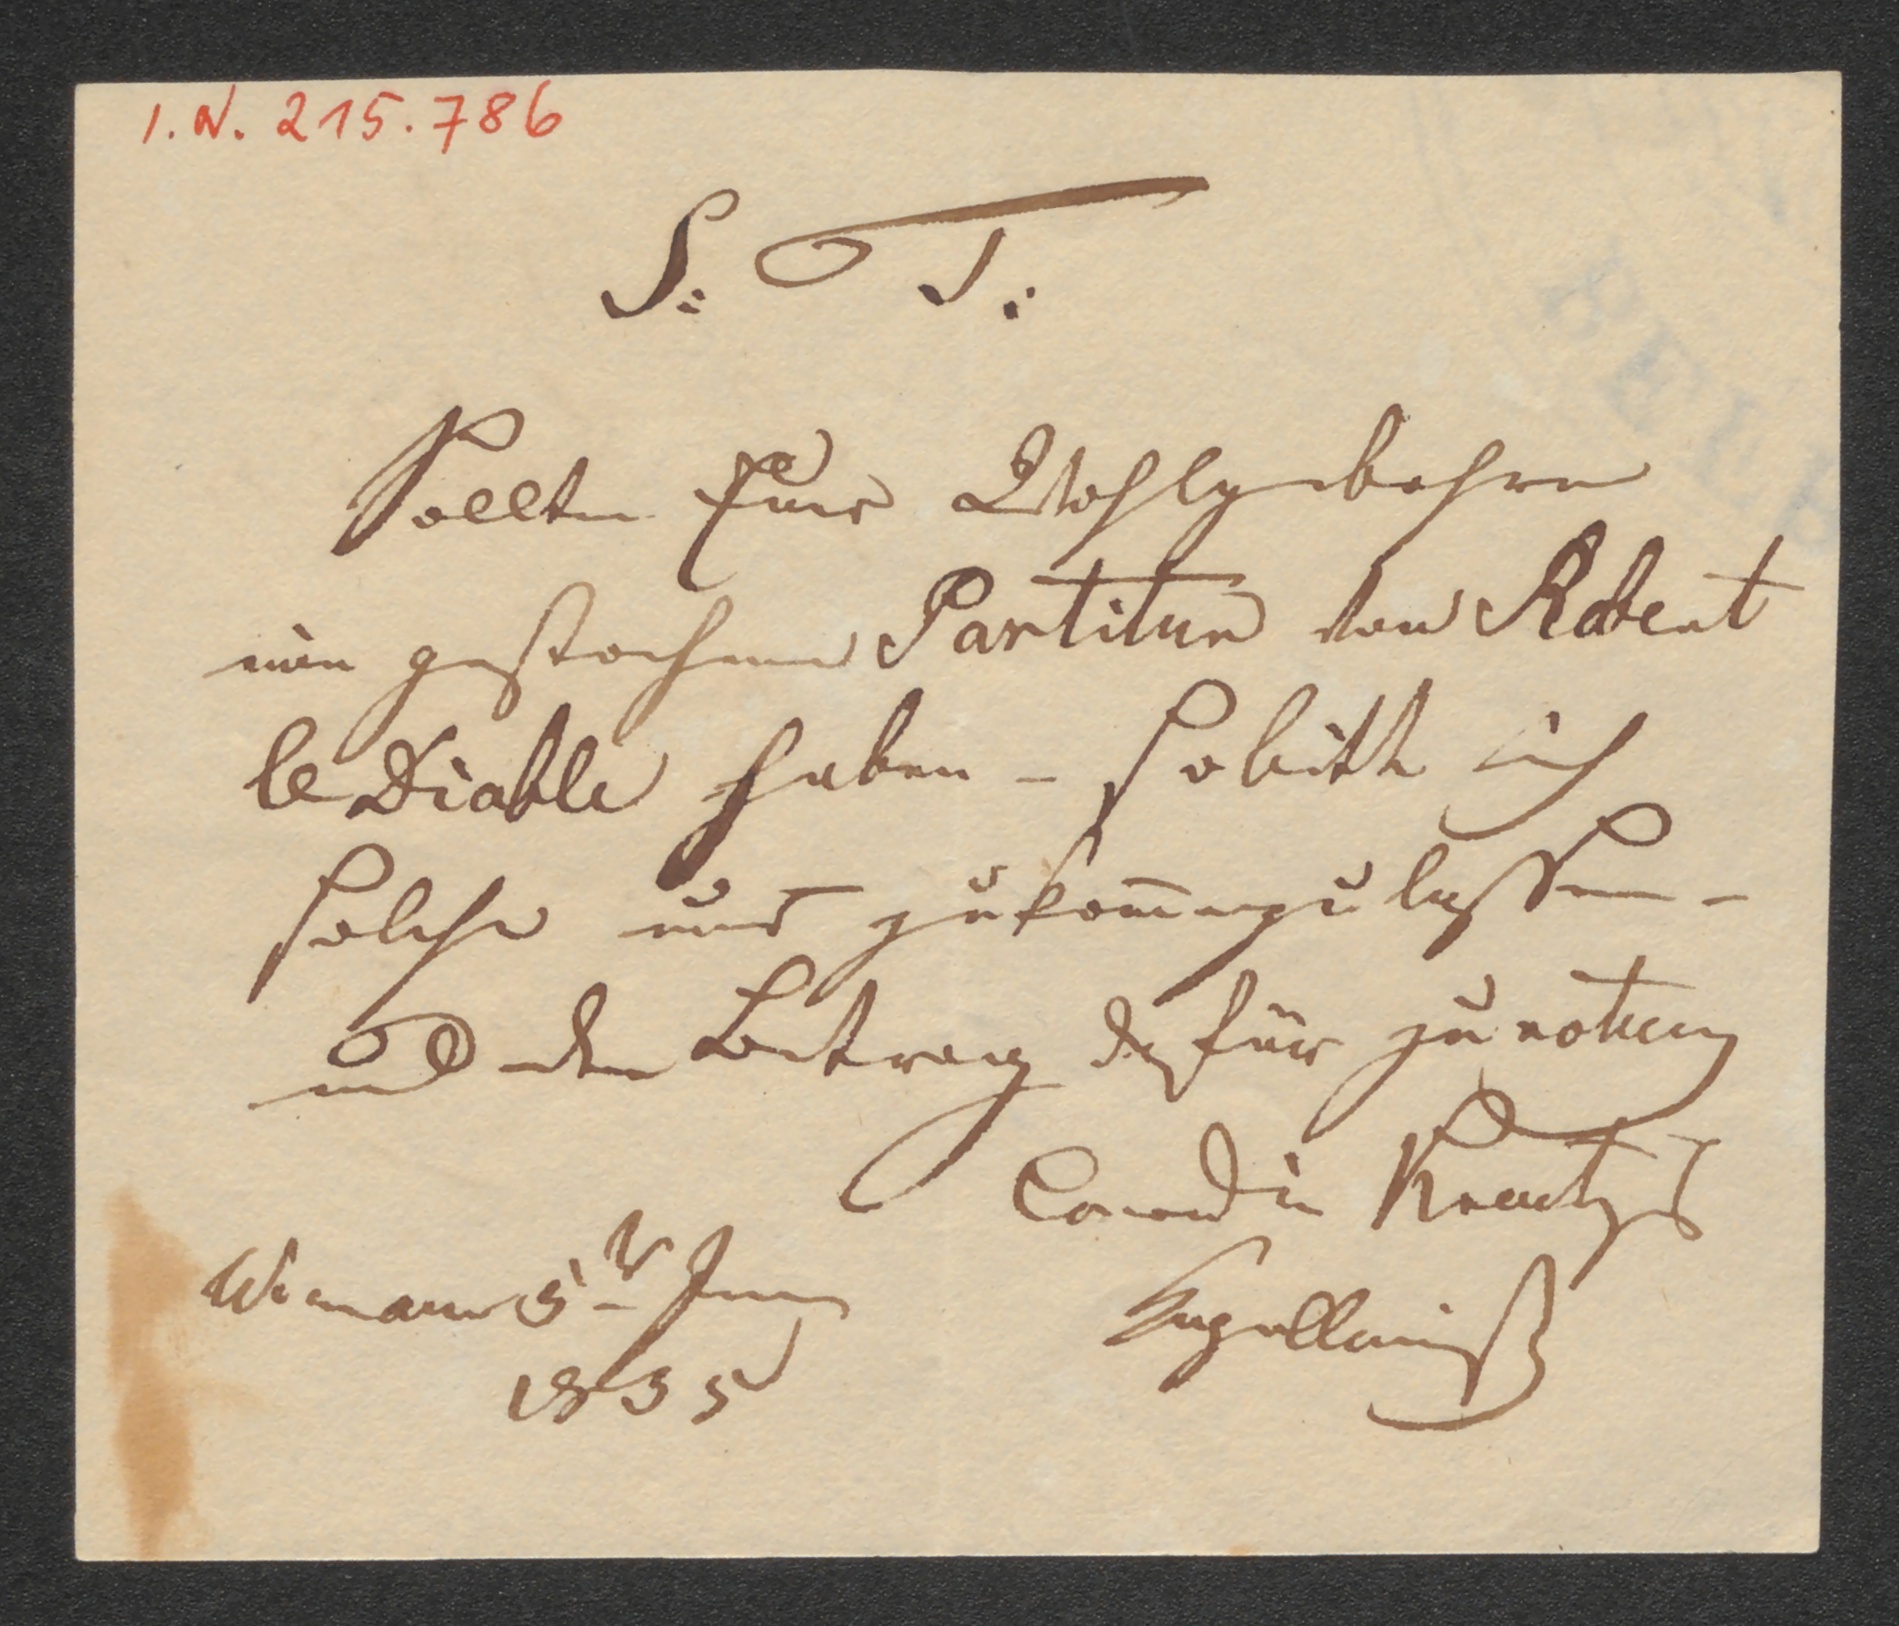 I. N. 215.786
S: T:
Sollten Euer Wohlgebohren
eine gestochene Partitur von Robert
le Diable haben – so bitte ich
solche uns zukom̅en zu lassen –
und den Betrag dafür zu notiren
Conradin Kreutzer
Kapellmeist
5
1835